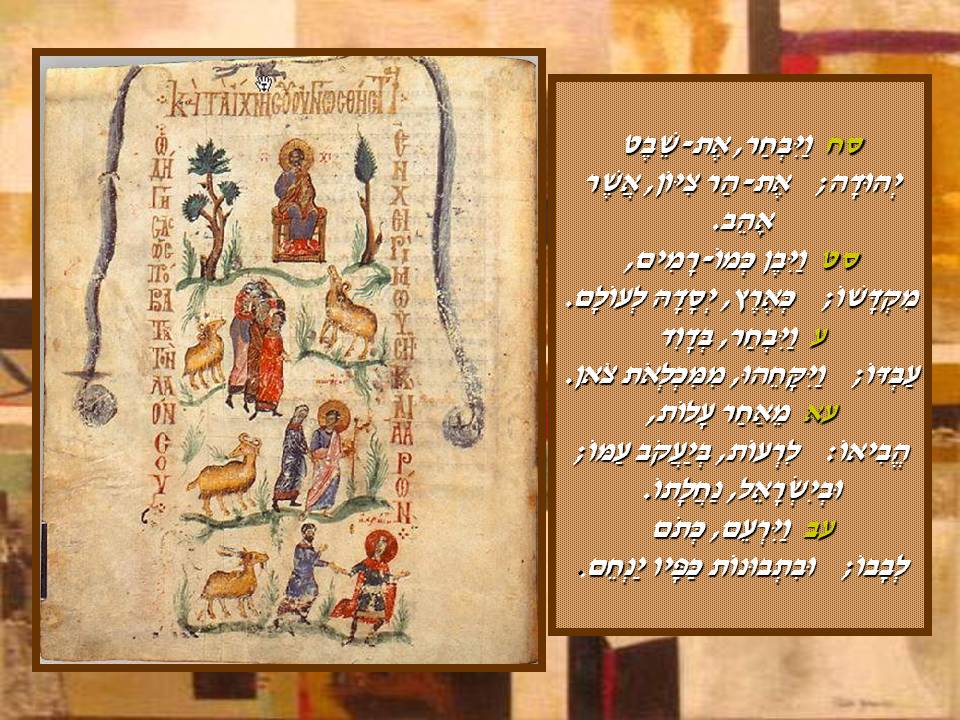 ΤΑ ΙΧΝΗ CΟΥ ΟΥ ΓΝΩCΘΗCΕΤ
ΩΔΗΓΗCΑC ΩC ΠΡΟΒΑΤΑ ΤΟΝ ΛΑΟΝ CΟΥ
ΕΝ ΧΕΙΡΙ ΜΩΥCΗ Κ ΑΑΡΩΝ
סח וַיִּבְחַר, אֶת-שֵׁבֶט
יְהוּדָה; אֶת-הַר צִיּוֹן, אֲשֶׁר
אָהֵב.
סט וַיִּבֶן כְּמוֹ-רָמִים,
מִקְדָּשׁוֹ; כְּאֶרֶץ, יְסָדָהּ לְעוֹלָם.
ע וַיִּבְחַר, בְּדָוִד
עַבְדּוֹ; וַיִּקָּחֵהוּ, מִמִּכְלְאֹת צֹאן.
עא מֵאַחַר עָלוֹת,
הֱבִיאוֹ: לִרְעוֹת, בְּיַעֲקֹב עַמּוֹ;
וּבְיִשְׂרָאֵל, נַחֲלָתוֹ.
עב וַיִּרְעֵם, כְּתֹם
לְבָבוֹ; וּבִתְבוּנוֹת כַּפָּיו יַנְחֵם.